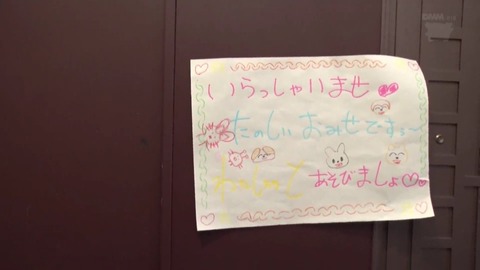 いらっしゃいませ
たのしいおみせですぅ〜
あそびましょ